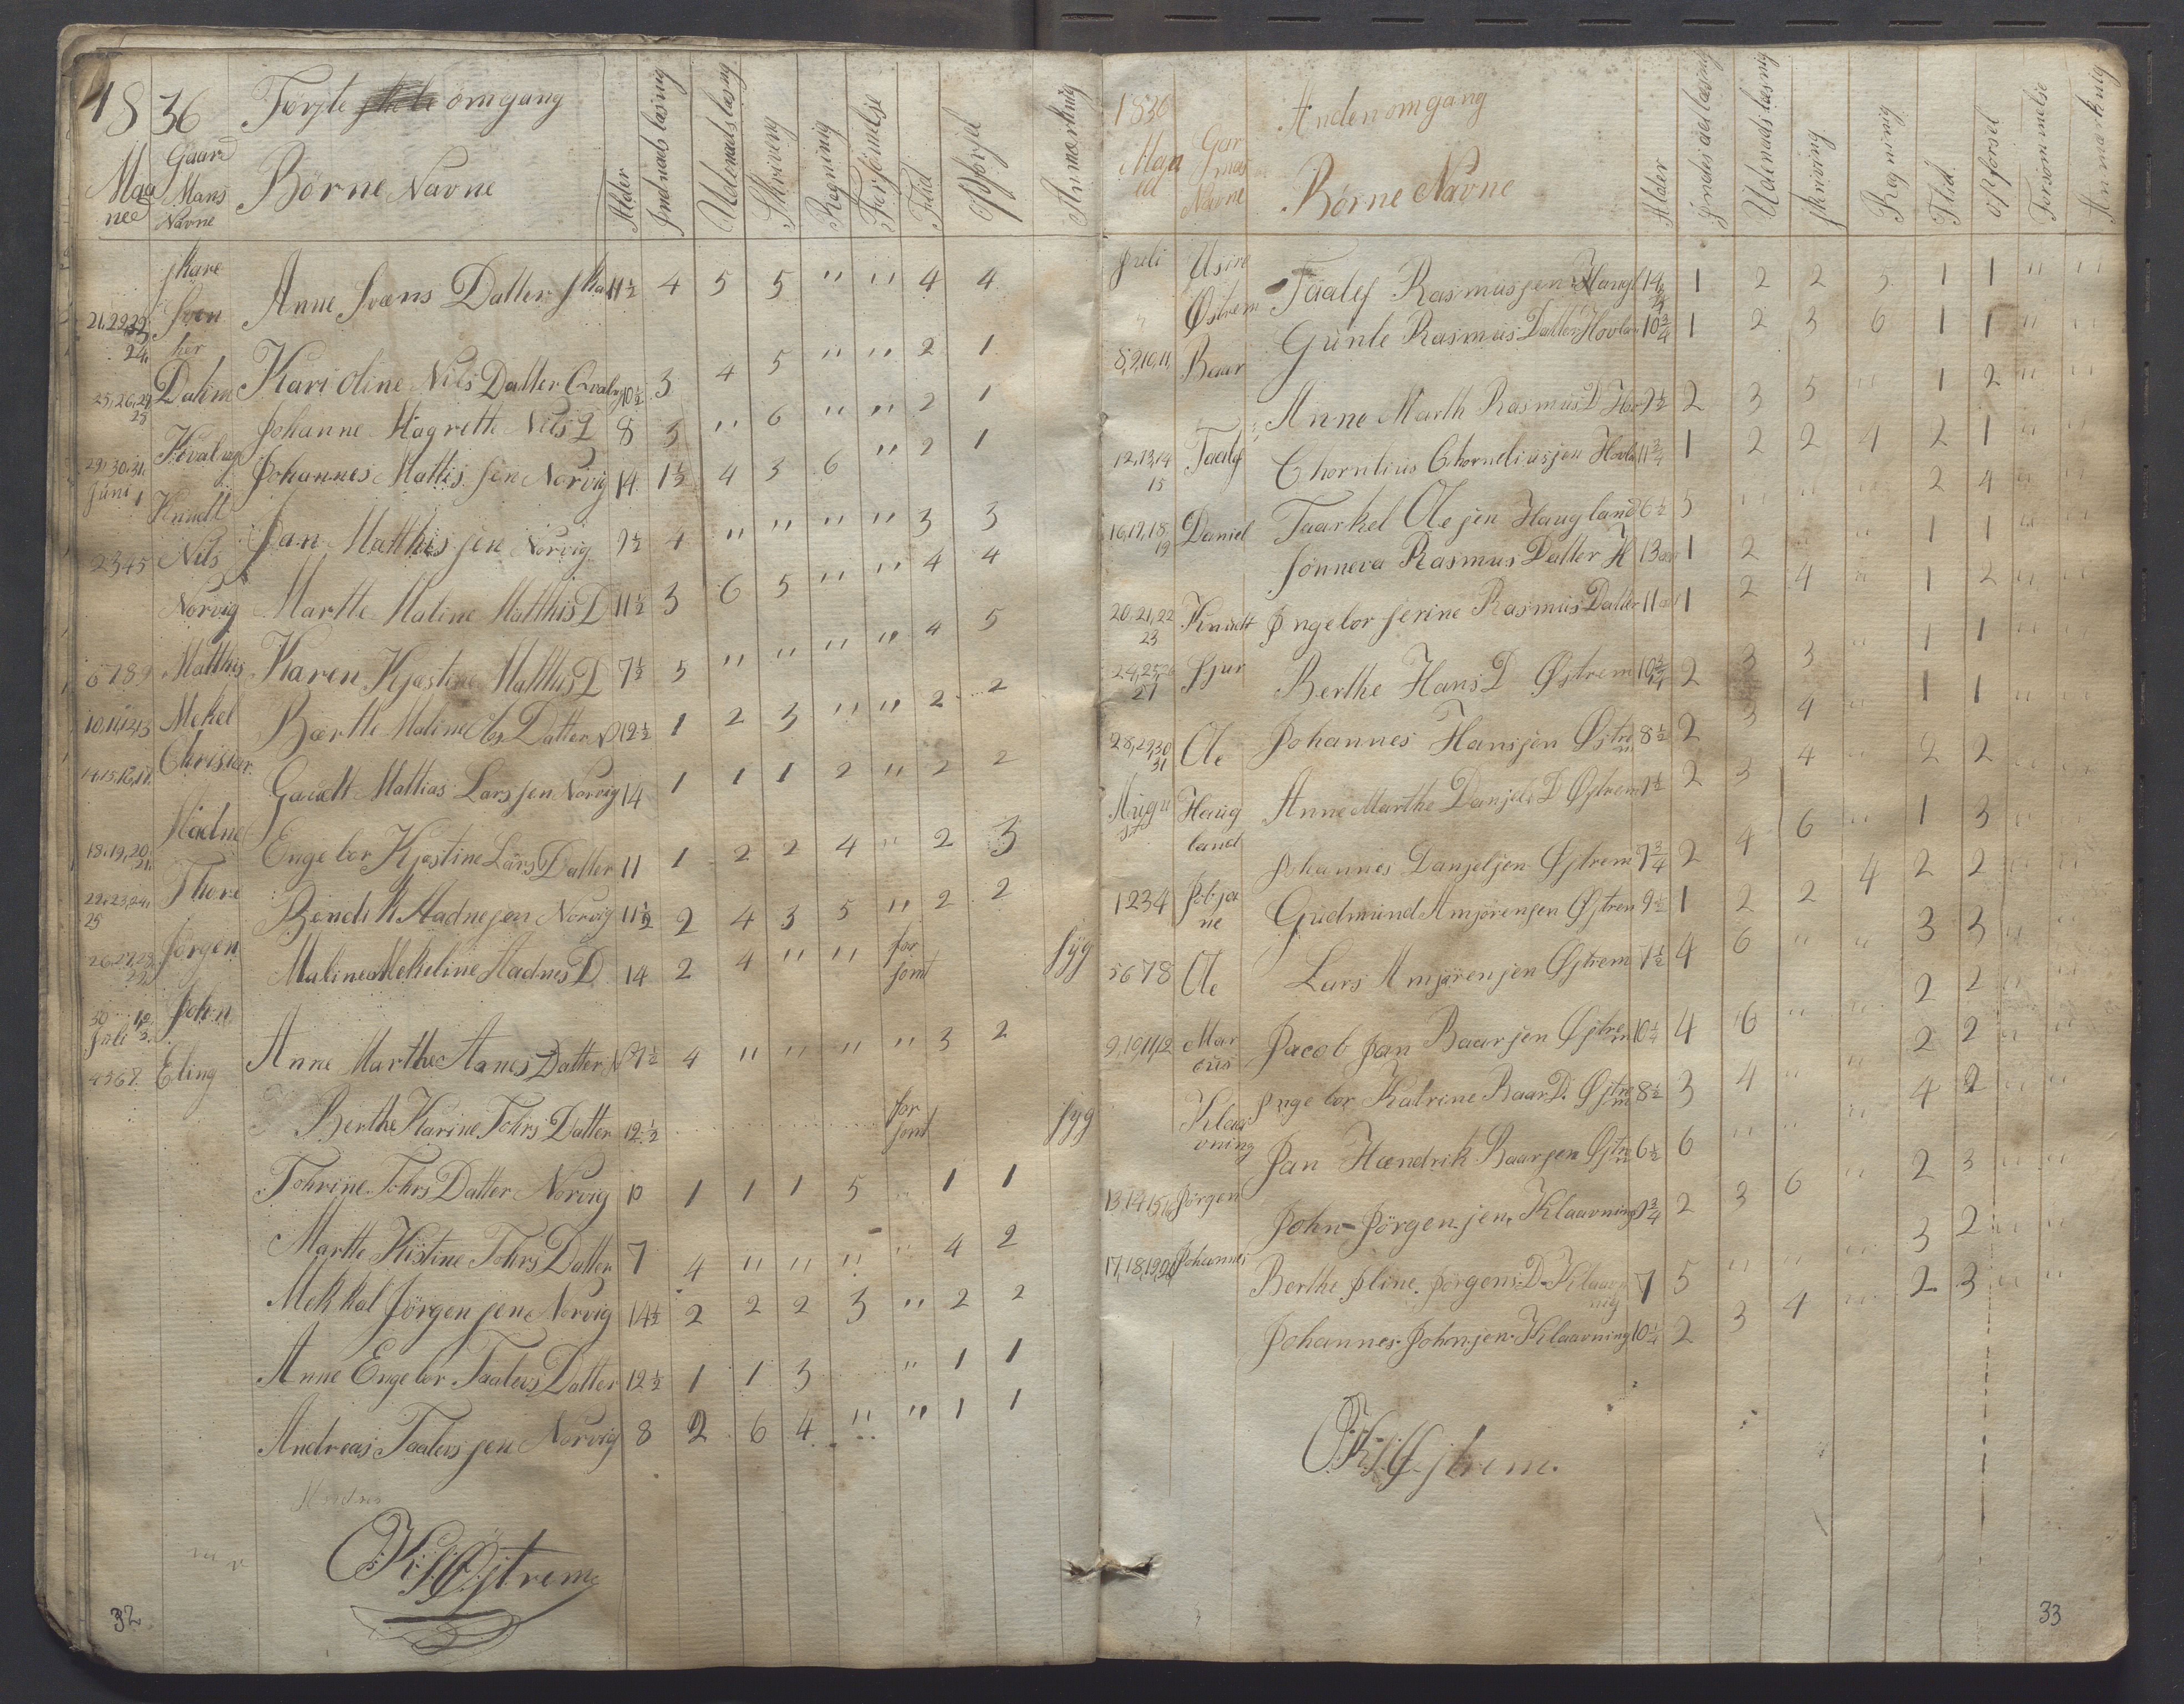 1836 Første omgang
Maaned Gaard Mans Navne Børne Navne Alder Indnads læsnig Udenads læsnig Skriveng Regning Forsømelse Flid Opførsel Anmærknig
Skare
21.22.23. 24. Sven Anne Svæns Datter Ska 11½ 4 5 5 " " 4 4
her
25.26.27 28 Dalim Kari Oline Nils Datter 10½ 3 4 5 " " 2 1
Johanne Magrette Nils D 8 5 " 6 " " 2 1
29.30.31. Juni 1 Johannes Mattis sen Norvig 14 1½ 4 3 6 " 2 1
Knudt
2345 Nils Jan Matthis sen Norvig 9½ 4 " " " " 3 3
Norvig Marthe Maline Matthis D 11½ 3 6 5 " " 4 4
6789 Matthis Karen Kjastine Matthis D 7½ 5 " " " " 4 5
10,11,12,13 Mekel Bærtte Maline Datter N 12½ 1 2 3 " " 2 2
14.15.16.17. Christian Gaudt Mattias Lars sen Norvig 14 1 1 1 2 " 2 2
Stadne
18.19.20. 21. Engebor Kjastine Lars Datter 11 1 2 2 4 " 2 3
22.23.24. 25 Thore Bendik Stadnesen Norvig 11½ 2 4 3 5 " 2 2
26.27.28. 29 Jørgen Maline Mekeline Stadnes D 14 2 4 " " for somt syg
30 1.2. Juli 3. John
4567 Eling Anne Marthe Aanes Datter N 7½ 4 " " " " 3 2
Berthe Karine Tohrs Datter 12½ for somt syg
Tohrine Tohrs Datter Norvig 10 1 1 1 5 " 1 1
Martte Kistine Tohrs Datter 7 4 " " " " 4 2
Mekkal Jørgen sen Norvig 14½ 2 2 2 3 " 2 2
Anne Engebor Taalevs Datter 12½ 1 1 3 " 1 1
Andreas Taalevs sen Norvig 8 2 6 4 " " 1 1
O.K.S. Østrem
32
1836 Anden omgang
Maaned Gar mas Navne Børne Navne Alder Indes ad læsnig Udenads læsnig skriving Regning Flid opførsel Forsømmelse Anmærknig
Juli Usire Taalef Rasmussen Haugl 14 1 2 2 3 1 1 " "
Østrem Gunle Rasmus Datter Hovlan 10¾ 1 2 3 6 1 1 " "
8,9,10,11, Baar
Anne Marth Rasmus D 7½ 2 3 5 " 1 2 " "
12,13,14 15 Taalef Chornlius Chorneliussen 11¾ 1 2 2 4 2 1 " "
Taarkel Olesen Haugland 6½ 5 " " " 2 4 " "
16,17,18, 19 Daniel Sønneva Rasmus Datter H 13 1 2 " " 1 1 " "
20,21,22 23 Knudt Ingebor Serine Rasmus Datter 11 1 2 4 " 1 2 " "
24,25,26 27 Sjur Berthe Hans D Østrem 10¾ 2 3 3 " 1 1 " "
28,29,30 31 Ole Johannes Hanssen Østrem 8½ 2 3 4 " 1 1 " "
August Haugland Anne Marthe Danjels D Østrem 2 3 4 " 2 2 " "
Johannes Danjelsen Østrem 7¾ 2 4 6 " 1 3 " "
1234 Gudmund Amjørensen Østrem 9½ 1 2 2 4 2 2 " "
5678 Ole Lars Amjørensen Østrem 7½ 4 6 " " 3 3 " "
9,10,11,12 Marcus Jacob Jan Baarsen Østrem 10¼ 4 6 " " 2 2 " "
Klaavning Ingebor Katrine Baar D. Østrem 8½ 3 4 " " 2 2 " "
Jan Hendrik Baarsen Østrem 6½ 6 " " " 4 2 " "
13,14,15,16 Jørgen John Jørgensen Klaavning 9¾ 2 3 6 " 2 3 " "
17,18,19,20 Johannes Berthe Jline Jørgens D. Klaavnig 7 5 " " " 3 2 " "
Johannes Johnsen Klaavning 10¼ 2 3 4 " 2 3 " "
O.K.S. Østrem.
33